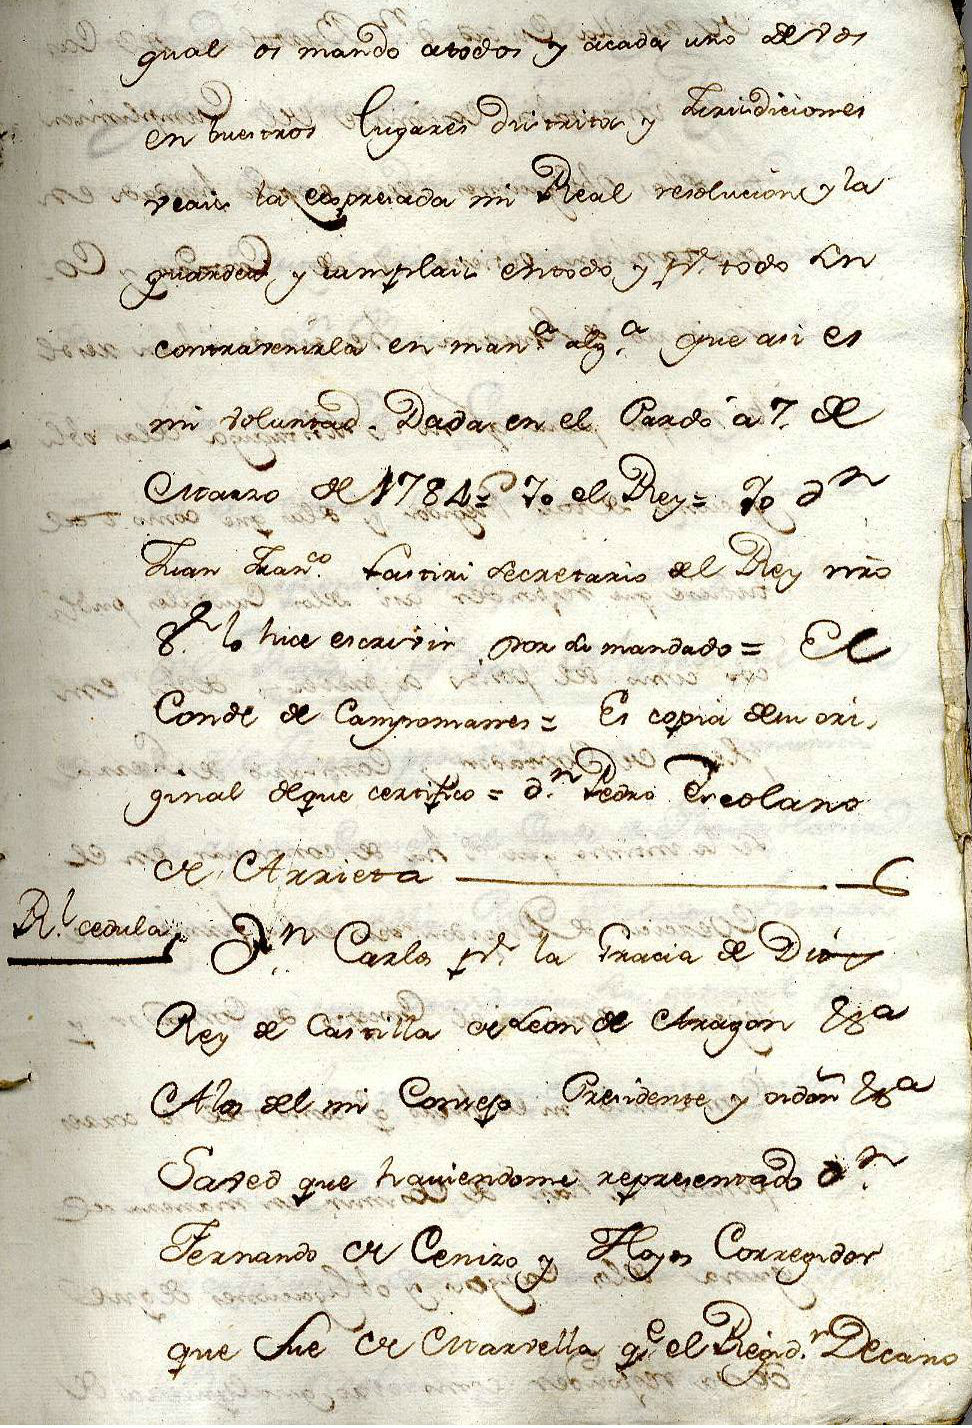 gual os mando atodos y acada uno de vos
en buestros lugares distritos y Jurisdiciones
veais la expresada mi Real resolucion y la
guardeis y cumplais entodo y pr. todo sin
contravenirla en mana. alga. que asi es
mi voluntad. Dada en el Pardo a 7. de
Marzo de 1784 = Yo el Rey = Yo dn
Juan Franco. Lastiri secretario del Rey nro
Sr. lo hice escrivir por su mandado = El
Conde de Campomanes = Es copia desu ori-
ginal deque certifico = dn. Pedro Escolano
de Arrieta
Rl. cedula
Dn. Carlos pr. la Gracia de Dios
Rey de Castilla de Leon de Aragon &a
Alos del mi Consejo Presidente y oidors &a
Saved que haviendome representado dn.
Fernando de Cenizo y Hoyos Corregidor
que fue de Marvella qe. el Regidr. Decano